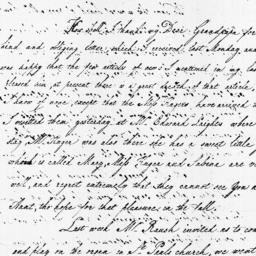 How well I thank my Dear Grandpapa for
kind and obliging letter which I received last Monday and
was happy that the few articles of news I mentioned in my last
pleased him at present there is a great dearth of that article
have of none except that the Miss Sagers have arrived
I visited them yesterday at Mr Edward Laights where
day, Mr. Sager was also there she has a sweet little
whom is called Mary, Miss Sager and Sabina are
well, and regret extremely that they cannot see You
Hunt, tho' hope for that pleasure in the fall.
Last week Mr. Raush invited us to
and play on the organ in St. Pauls church, we went